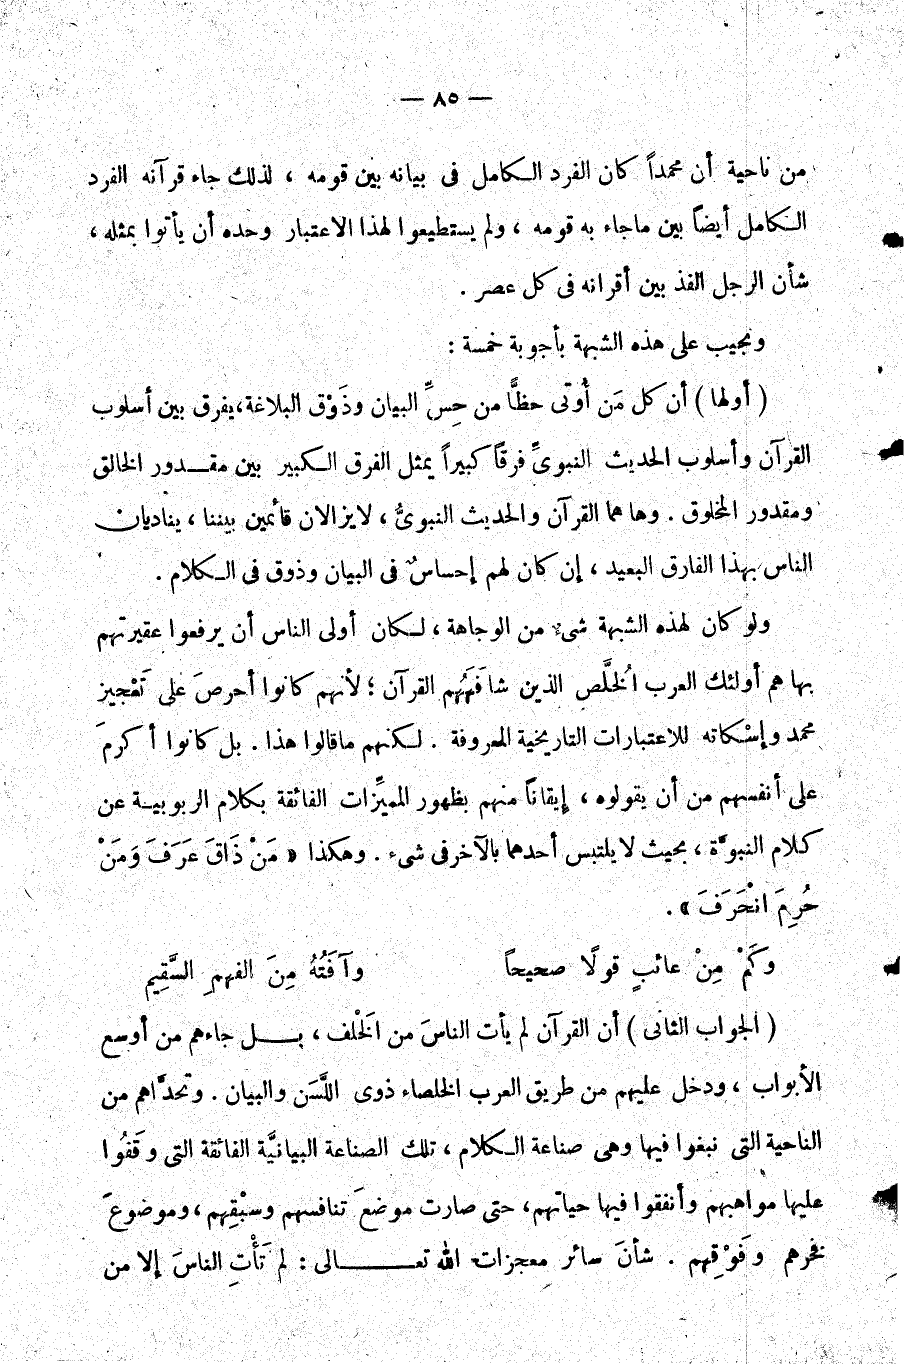 — ٨٥ —
من ناحية أن محمداً كان الفرد الـكامل فى بيانه بين قومه ، لذلك جاء قرآنه الفرد
الـكامل أيضاً بين ماجاء به قومه ، ولم يستطيعوا لهذا الاعتبار وحده أن يأتوا بمثله ،
شأن الرجل الفذ بين أقرانه فى كل عصر .
ونجيب على هذه الشبهة بأجوبة خمسة :
( أولها ) أن كل مَن أُوتى حظًّا من حِسِّ البيان وذَوْق البلاغة،يفرق بين أسلوب
القرآن وأسلوب الحديث النبوىِّ فرقاً كبيراً يمثل الفرق الـكبير بين مقـدور الخالق
ومقدور المخلوق . وها هما القرآن والحديث النبوىُّ ، لايزالان قائمين بيننا ، يناديان
الناس بهذا الفارق البعيد ، إن كان لهم إحساسٌ فى البيان وذوق فى الـكلام .
ولو كان لهذه الشبهة شىءٌ من الوجاهة ، لـكان أولى الناس أن يرفعوا عقيرتهم
بها هم أولئك العرب الخُلَّص الذين شافَهَهُم القرآن ؛ لأنهم كانوا أحرصَ على تَعْجيز
محمد وإسْكاته للاعتبارات التاريخية المعروفة . لـكنهم ماقالوا هذا . بل كانوا أكرمَ
على أنفسهم من أن يقولوه ، إيقاناً منهم بظهور المميِّزات الفائقة بكلام الربوبيـة عن
كلام النبوَّة ، بحيث لايلتبس أحدهما بالآخرفى شىء . وهكذا « مَنْ ذَاقَ عَرَفَ وَمَنْ
حُرِمَ انْحَرَفَ » .
وكَمْ مِنْ عائبٍ قولًا صحيحاً وآفَتُهُ مِنَ الفهمِ السَّقِيمِ
( الجواب الثانى ) أن القرآن لم يأت الناسَ من الخَلْف ، بـــل جاءهم من أوسع
الأبواب ، ودخل عليهم من طريق العرب الخلصاء ذوى اللَّسَن والبيان . وتحدَّاهم من
الناحية التى نبغوا فيها وهى صناعة الـكلام ، تلك الصناعة البيانيَّة الفائقة التى وقَفُوا
عليها مواهبهم وأنفقوا فيها حياتهم، حتى صارت موضعَ تنافسهم وسبْقِهم ،وموضوعَ
فخرهم وفَوْقِهم . شأنَ سائر معجزات الله تعــــالى : لم تَأْتِ الناسَ إلا من